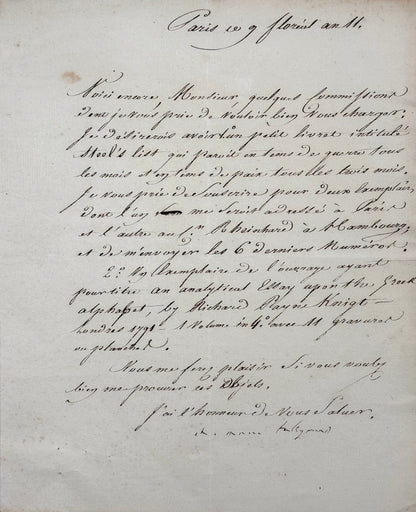 Paris ce 9 floréal an 11.
Voici encore, Monsieur quelques Commissions
dont je vous prie de vouloir bien vous charger.
Je désirerois avoir 1.° un petit livret intitulé
Steel's list qui paroit en tems de guerre tous
les mois et en tems de paix tous les trois mois.
Je vous prie de Souscrire pour deux Exemplaires,
dont l'un me seroit adressé à Paris
et l'autre au C.en Rheinhard à Hambourg,
et de m'envoyer les 6 derniers Numéros.
2.° Un Exemplaire de l'ouvrage ayant
pour titre an analytical Essay upon the Greek
alphabet, by Richard Payne Knigt-
Londres 1791 - 1 Volume in 4.° avec 11 gravures
ou planches.
Vous me ferez plaisir Si vous voulez
bien me procurer ces objets.
J'ai l'honneur de Vous Saluer.